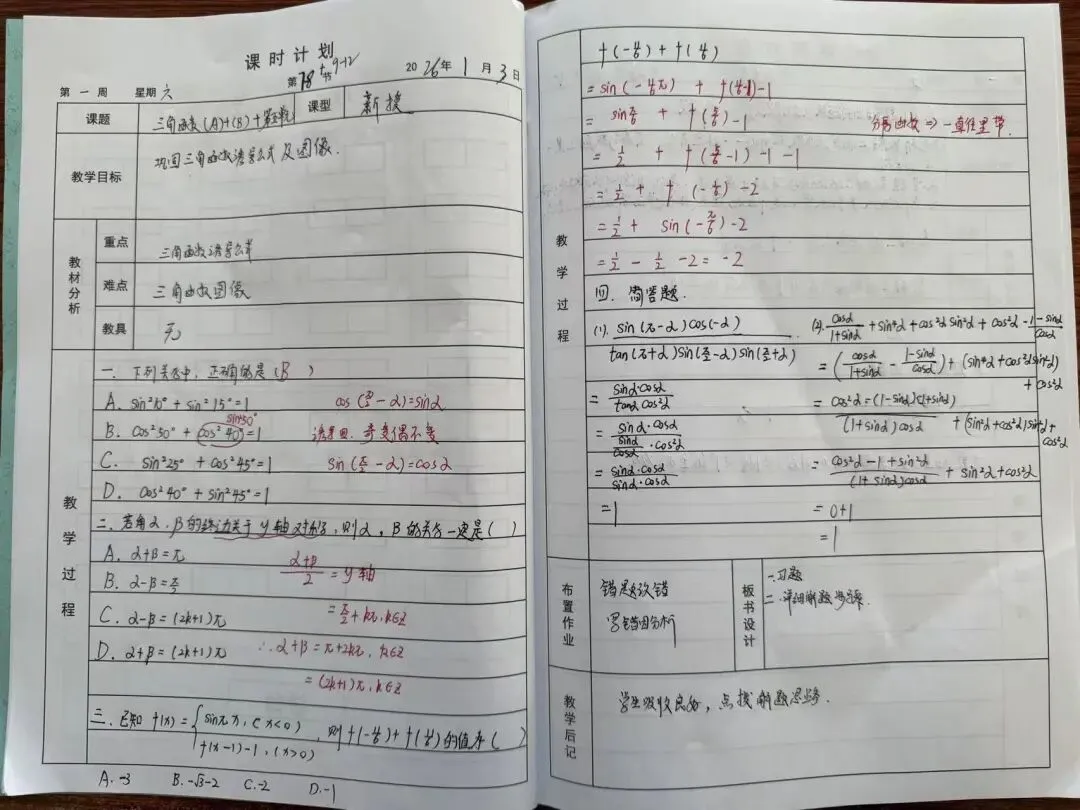 课时计划
第 一 周 星期 六 第 78 节 9-12 2026年 1 月 3 日
课题 三角函数(A)+(B)+ 课型 新授
教学目标 巩固三角函数诱导公式及图像.
教材分析
重点 三角函数诱导公式
难点 三角函数图像
教具 无
教学过程
一. 下列关系中, 正确的是 (B)
A. sin²10° + sin²15° = 1 cos(π/2 - α) = sinα
sin²50°
B. cos²50° + cos²40° = 1 诱导 奇变偶不变
C. sin²25° + cos²45° = 1 sin(π/2 - α) = cosα
D. cos²40° + sin²45° = 1
二. 若角α, β的终边关于y轴对称, 则α, β的关系一定是( )
A. α+β=π α+β/2 = y轴
B. α-β=π/2
C. α-β=(2k+1)π = π/2 + kπ, k∈Z
D. α+β=(2k+1)π ∴α+β=π+2kπ, k∈Z
= (2k+1)π, k∈Z
三. 已知 f(x) = { sinπx, (x<0)
f(x-1)-1, (x>0) , 则 f(-11/6) + f(11/6) 的值为( )
A. -3 B. -√3-2 C. -2 D. -1
f(-11/6) + f(11/6)
= sin(-11/6π) + f(11/6-1)-1
= sinπ/6 + f(5/6)-1 分段函数⇒一直往里带.
= 1/2 + f(5/6-1)-1-1
= 1/2 + f(-1/6)-2
= 1/2 + sin(-π/6)-2
= 1/2 - 1/2 -2 = -2
教学过程
四. 简答题.
(1). sin(π-α)cos(-α) / tan(π+α)sin(π/2-α)sin(π/2+α)
= sinα·cosα / tanαcos²α
= sinα·cosα / sinα/cosα·cos²α
= sinα·cosα / sinα·cosα
= 1
(2). cosα/1+sinα + sin⁴α + cos²αsin²α + cos²α - 1-sinα/cosα
= (cosα/1+sinα - 1-sinα/cosα) + (sin⁴α+cos²αsin²α) + cos²α
= cos²α-(1-sinα)(1+sinα) / (1+sinα)cosα + (sin²α+cos²α)sin²α + cos²α
= cos²α-1+sin²α / (1+sinα)cosα + sin²α+cos²α
= 0+1
= 1
布置作业 错题改错
写错因分析
板书设计 一.习题
二.详细解题步骤.
教学后记 学生吸收良好, 点拨解题思路.